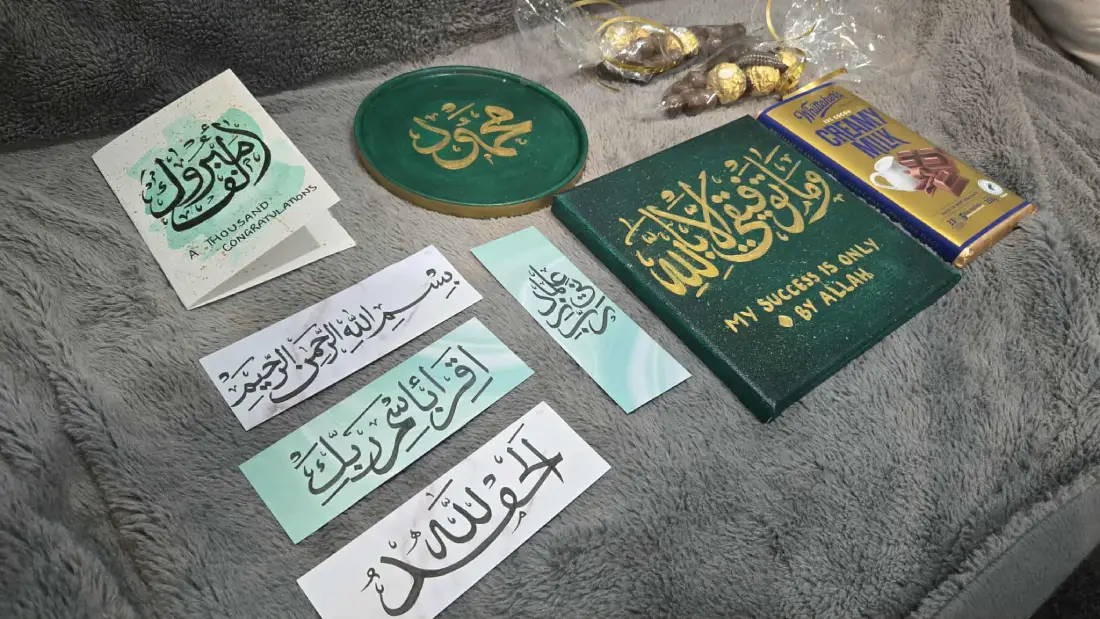 ألف مبروك
A THOUSAND
CONGRATULATIONS
محمود
وما توفيقي إلا بالله
MY SUCCESS IS ONLY
BY ALLAH
Whittaker's
CREAMY
MILK
بسم الله الرحمن الرحيم
رب زدني علما
اقرأ باسم ربك
الحمد لله